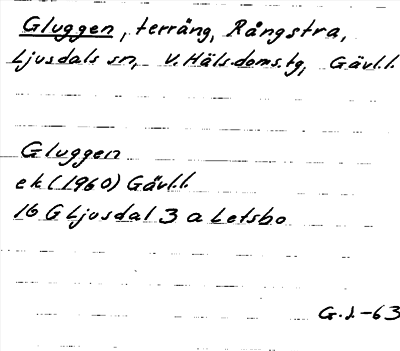 Gluggen, terräng, Rångstra,
Ljusdals sn, V. Häls. doms. tg, Gävl.l.
Gluggen
ek (1960) Gävl.l.
16 G Ljusdal 3 a Letsbo
G.J.-63